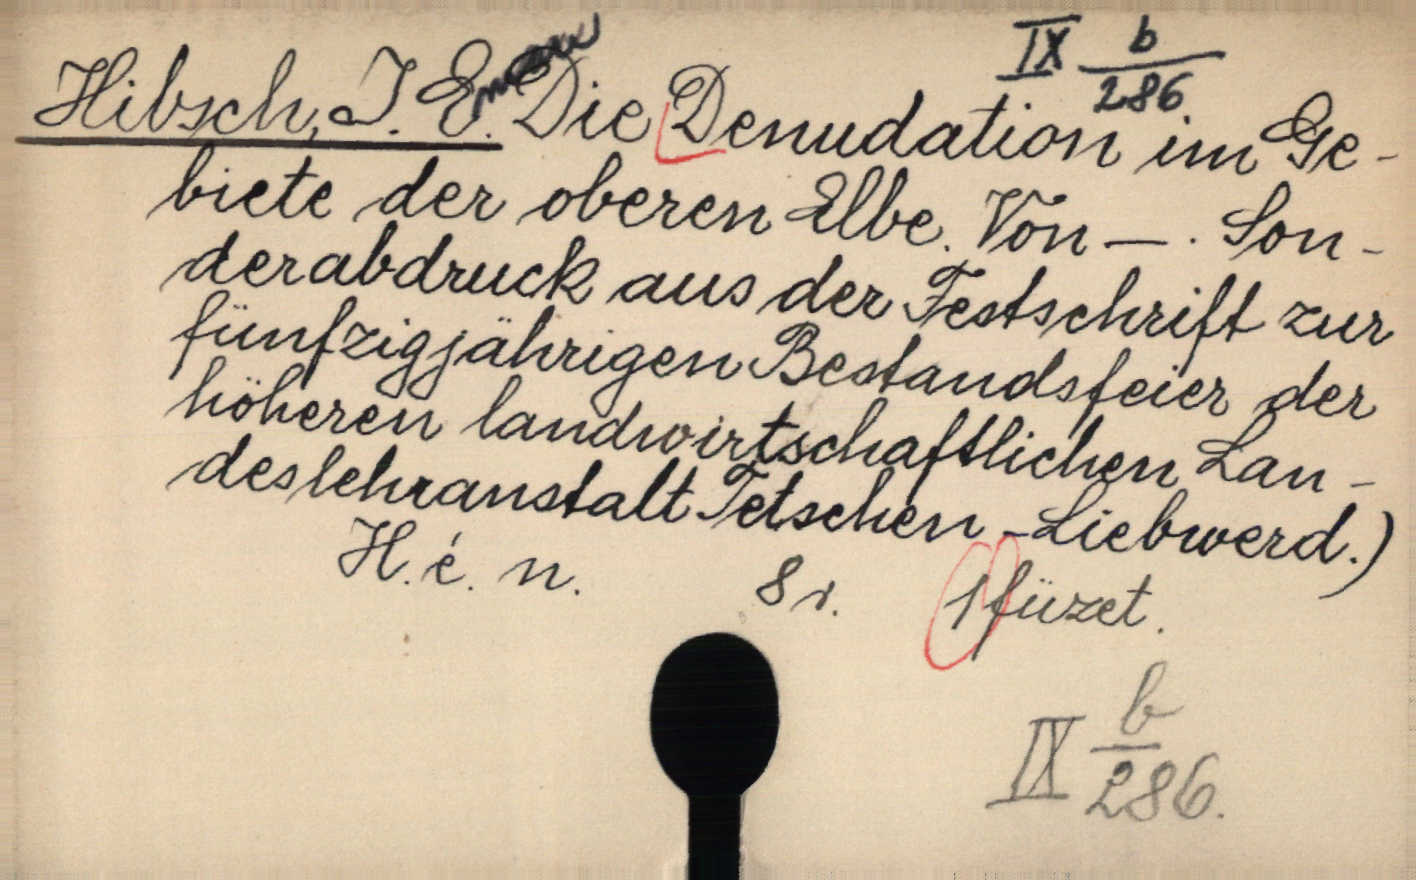 IX b/286
Hibsch, J. E. Die Denudation im Ge-
biete der oberen Elbe. Von —. Son-
derabdruck aus der Festschrift zur
fünfzigjährigen Bestandsfeier der
höheren landwirtschaftlichen Lan-
deslehranstalt Tetschen-Liebwerd.)
H. é. n. 8r. 1 füzet.
IX b/286.